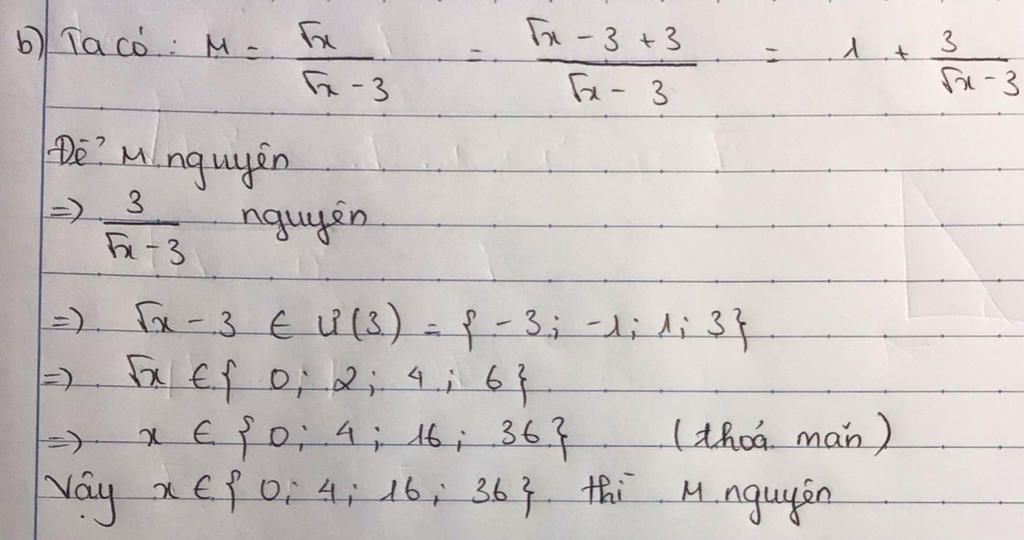 b) Ta có: M = √x / (√x - 3) = (√x - 3 + 3) / (√x - 3) = 1 + 3 / (√x - 3)
Để M nguyên
=> 3 / (√x - 3) nguyên
=> √x - 3 ∈ Ư(3) = { -3; -1; 1; 3}
=> √x ∈ { 0; 2; 4; 6}
=> x ∈ { 0; 4; 16; 36} (thoả mãn)
Vậy x ∈ { 0; 4; 16; 36} thì M nguyên